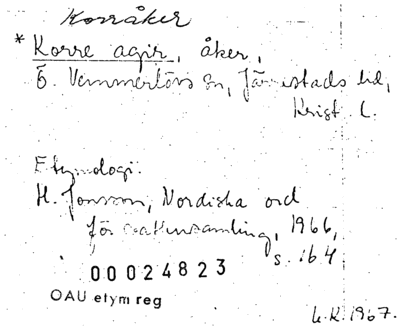 Korråker
* Korre agir, åker,
Ö. Vemmerlövs sn, Järrestads hd,
Krist. l.
Etymologi:
H. Jonsson, Nordiska ord
för vattensamling, 1966,
s. 164
00024823
OAU etym reg
1967.